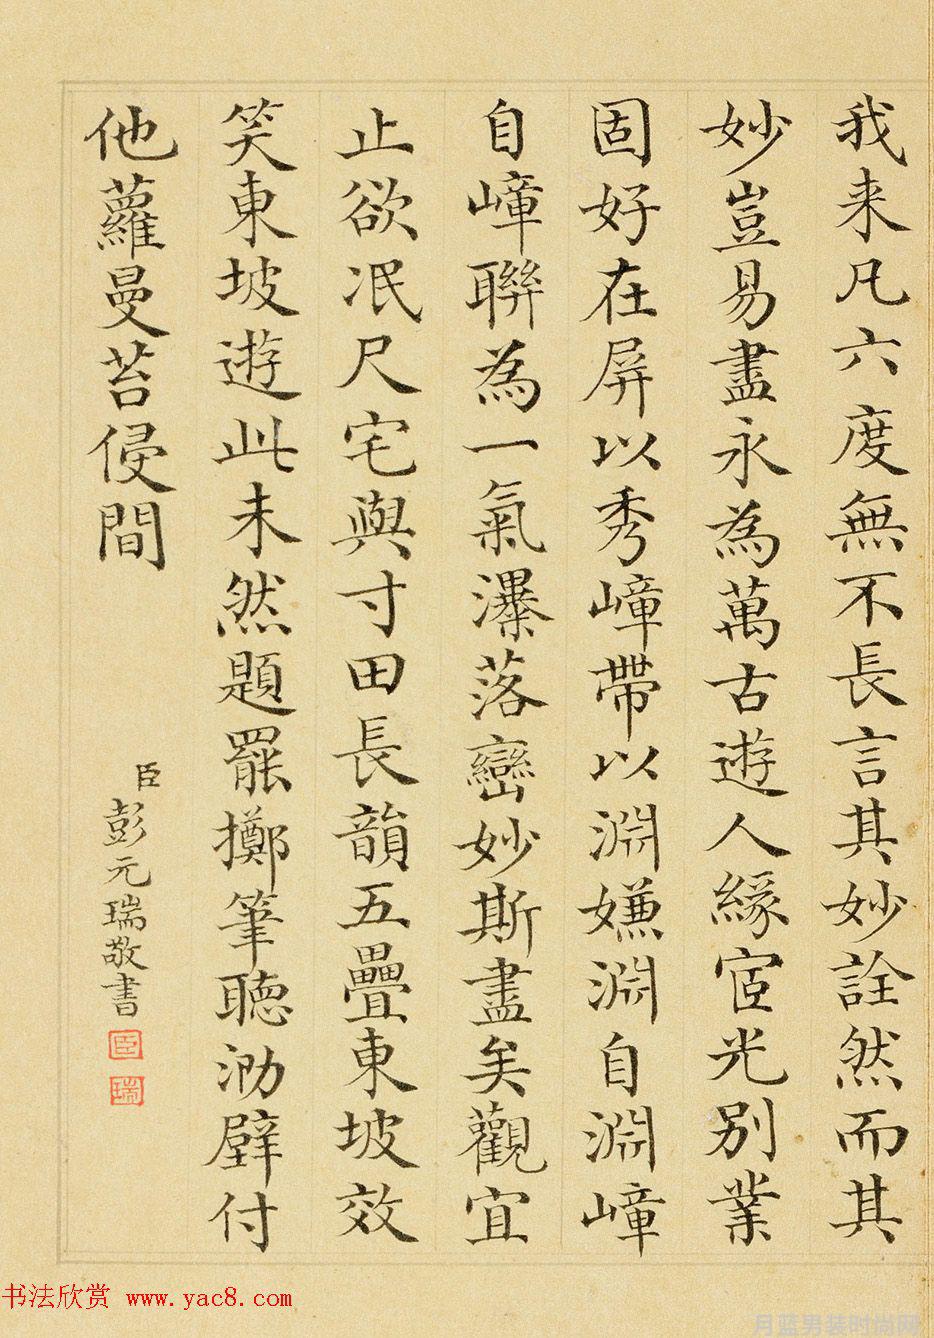 我来凡六度無不長言其妙詮然而其
妙豈易盡永為萬古遊人緣宧光別業
固好在屏以秀嶂帶以淵嫌淵自淵嶂
自嶂聯為一氣瀑落巒妙斯盡矣觀宜
止欲泯尺宅與寸田長韻五疊東坡效
笑東坡遊此未然題罷擲筆聽泐壁付
他蘿曼苔侵間
臣彭元瑞敬書
臣
瑞
书法欣赏 www.yac8.com
月蓝男装时尚网